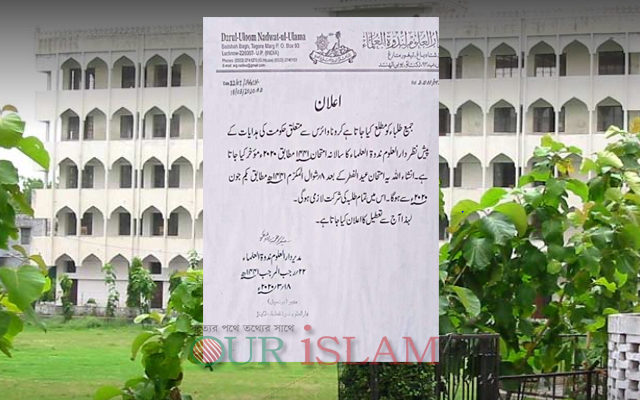 Darul-Uloom Nadwat-ul-Ulama
Badshah Bagh, Tagore Marg P. O. Box 93
Lucknow-226007- U.P. (INDIA)
دار العلوم لندوۃ العلماء
اعلان
جمیع طلباء کو مطلع کیا جاتا ہے کرونا وائرس سے متعلق حکومت کی ہدایات کے
پیش نظر دار العلوم ندوۃ العلماء کا سالانہ امتحان ۱۴۴۱ مطابق ۲۰۲۰ء مؤخر کیا جاتا
ہے۔ انشاء اللہ یہ امتحان عید الفطر کے بعد ۸؍شوال المکرم ۱۴۴۱ھ مطابق یکم جون
۲۰۲۰ء سے ہوگا۔ اس میں تمام طلبہ کی شرکت لازمی ہوگی۔
لہٰذا آج سے تعطیل کا اعلان کیا جاتا ہے۔
مدیر دار العلوم ندوۃ العلماء
۲۲؍رجب المرجب ۱۴۴۱ھ
۱۸؍۳؍۲۰۲۰ء
সত্যের পথে তথ্যের সাথে
OUR iSLAM